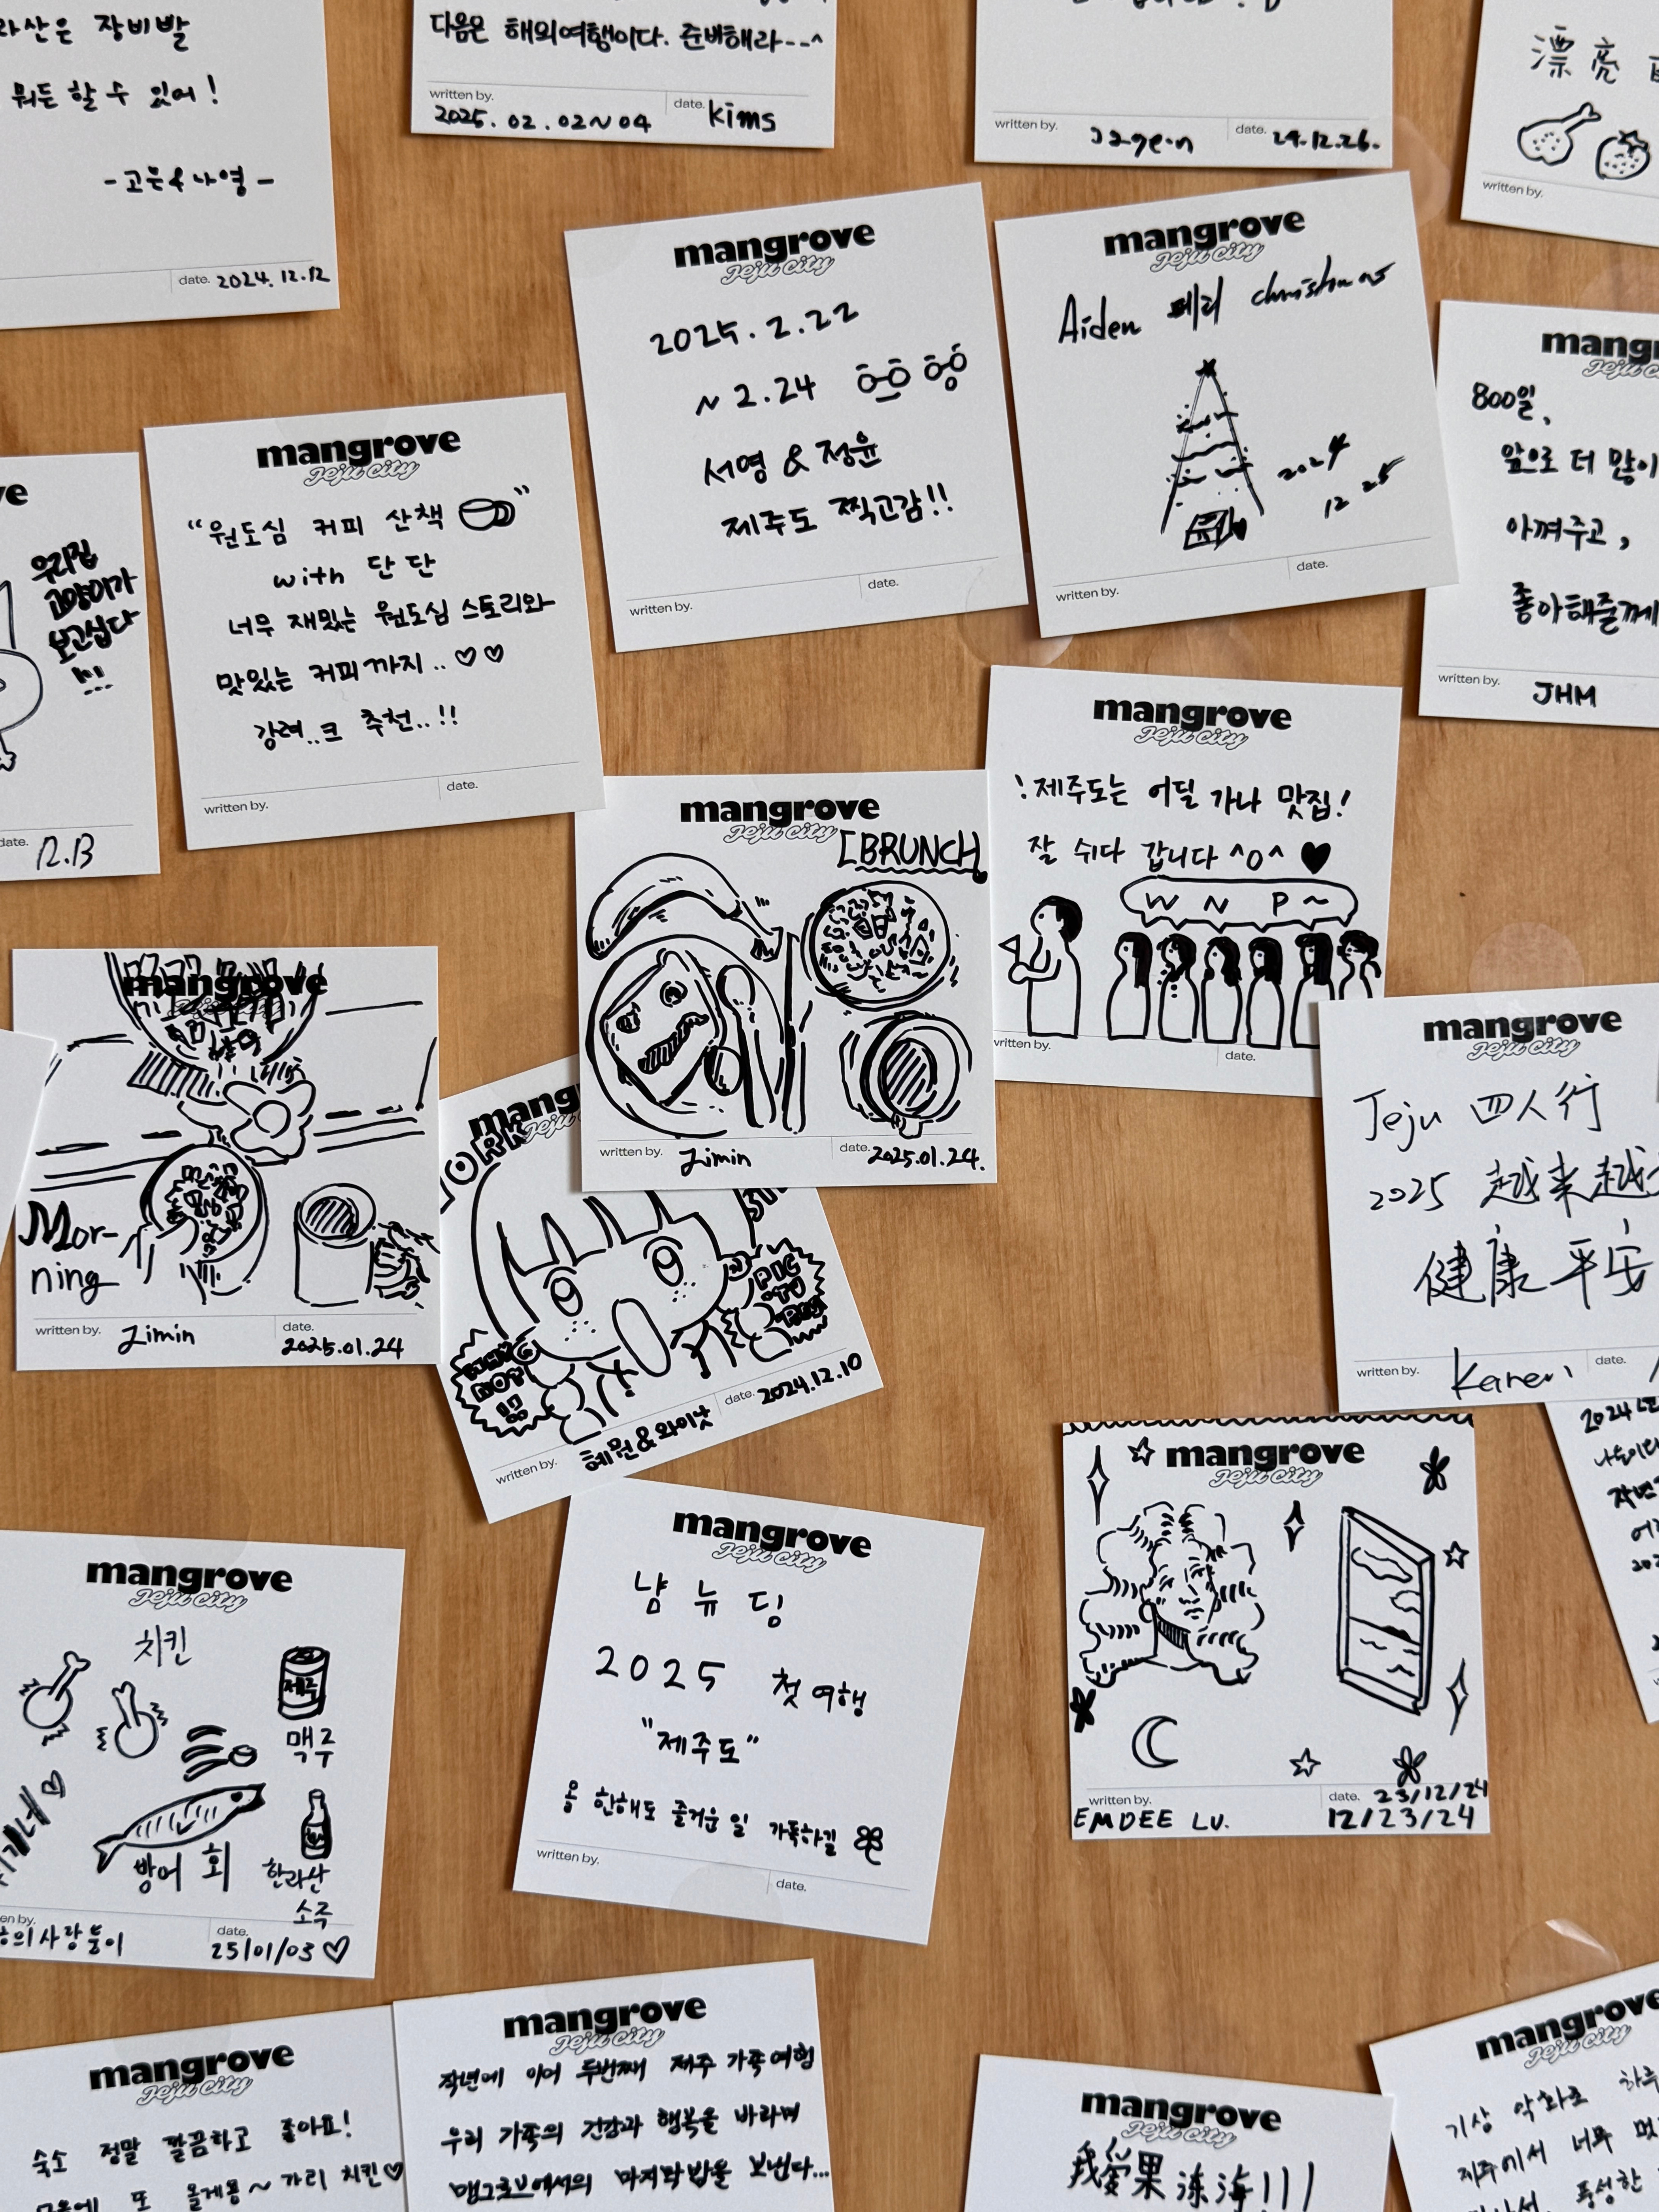 장비발
뭐든 할 수 있어!
-고은&나영-
date. 2024.12.12
다음은 해외여행이다. 준비해라--^
written by.
date.
2025.02.02~04
kims
written by.
date. 24.12.26.
漂亮
written by.
mangrove
Jeju city
2025.2.22
~2.24
서영 & 정윤
제주도 찍고감!!
written by.
date.
mangrove
Jeju city
Aiden 메리 christmas
2024
12 25
written by.
date.
Jeju city
800일,
앞으로 더 많이
아껴주고,
좋아해줄게
written by. JHM
우리집
고양이가
보고싶다
!!!
date. R.B
mangrove
Jeju city
"원도심 커피 산책"
with 단단
너무 재밌는 원도심 스토리와
맛있는 커피까지..♡♡
강려..크 추천..!!
written by.
date.
mangrove
Jeju city
[BRUNCH]
written by. Jimin
date. 2025.01.24.
mangrove
Jeju city
!제주도는 어딜 가나 맛집!
잘 쉬다 갑니다 ^o^ ♥
W N P ~
written by.
date.
mangrove
Mor-
ning
written by. Jimin
date. 2025.01.24
Jeju
PIG
written by. 혜원&와이낫
date. 2024.12.10
mangrove
Jeju city
Jeju 四人行
2025 越来越
健康平安
written by. Karen
date.
mangrove
Jeju city
written by.
EMDEE LU.
date. 23/12/24
12/23/24
mangrove
Jeju city
치킨
제주
맥주
방어 회
한라산
소주
사랑둥이
date.
25/01/03♡
mangrove
Jeju city
냠 뉴 딩
2025 첫 여행
"제주도"
올 한해도 즐거운 일 가득하길
written by.
date.
mangrove
Jeju city
숙소 정말 깔끔하고 좋아요!
또 올게용~ 가리 치킨♡
mangrove
Jeju city
작년에 이어 두번째 제주 가족여행
우리 가족의 건강과 행복을 바라며
맹그로브에서의 마지막 밤을 보낸다...
mangrove
Jeju city
我爱果冻海!!!
mangrove
Jeju city
기상 악화로 하루
제주에서 너무
풍성한